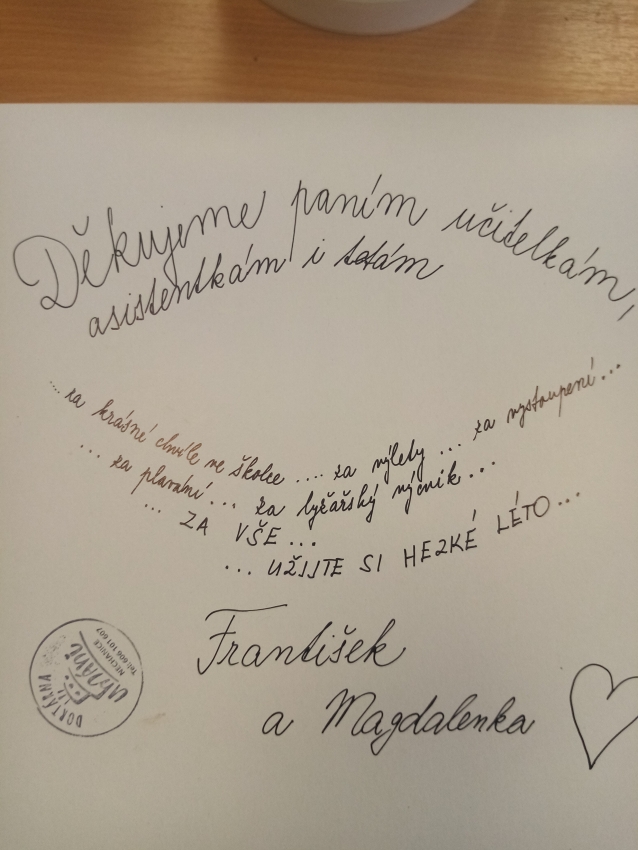 Děkujeme paním učitelkám,
asistentkám i tetám
... za krásné chvíle ve školce .... za výlety ... za vystoupení...
... za plavání... za lyžařský výcvik...
... ZA VŠE ...
... UŽIJTE SI HEZKÉ LÉTO...
František
a Magdalenka
DORTÁRNA
NECHANICE
Tel: 606 101 607